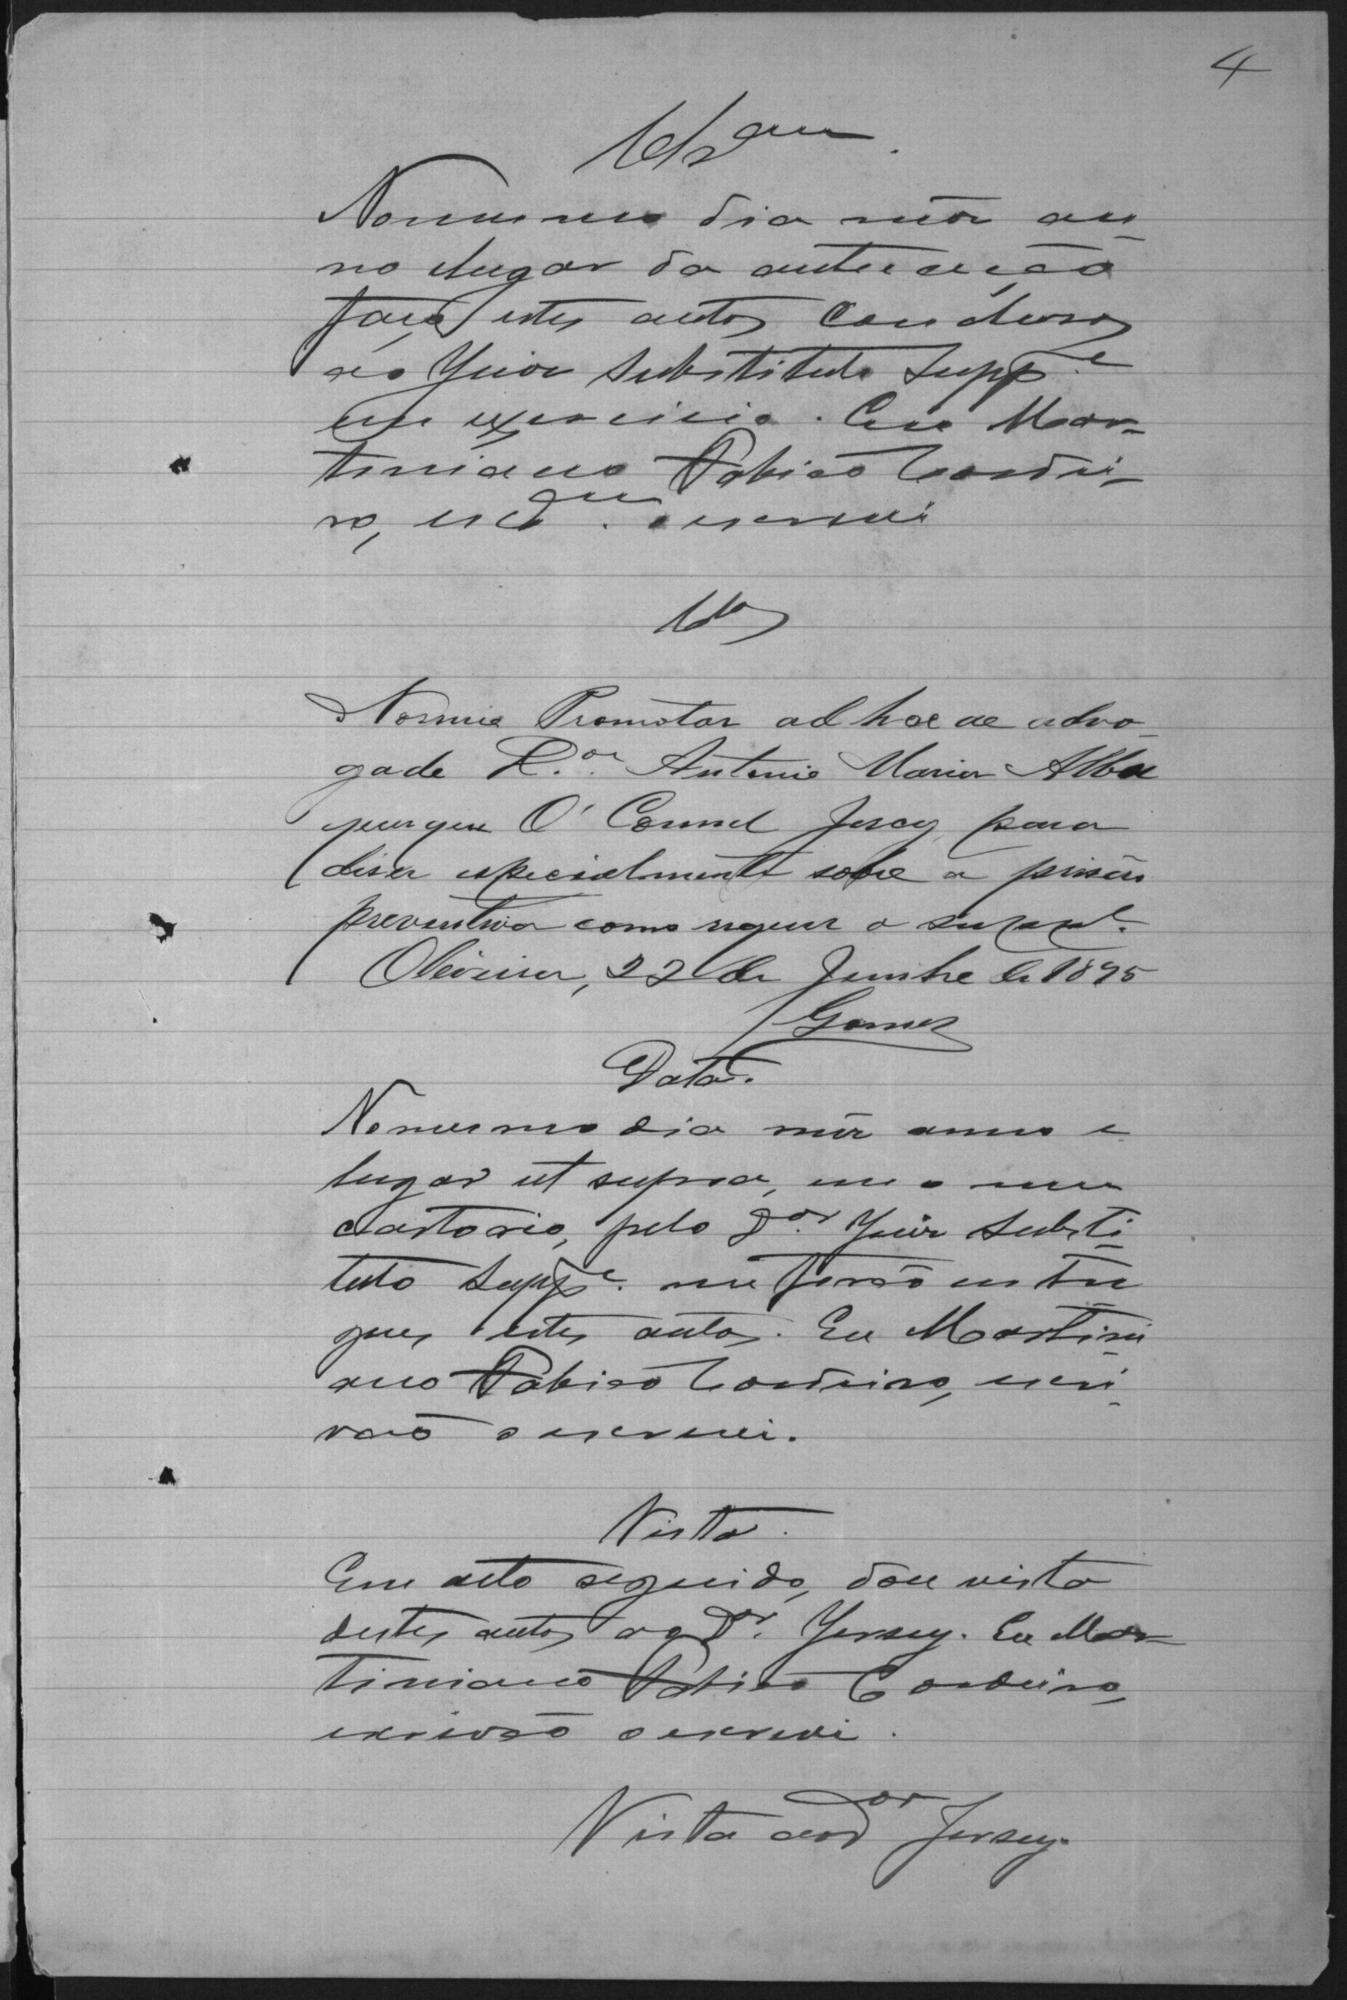 4
Cls.am
No mesmo dia mez an-
no e lugar da autuação
faço estes autos conclusos
ao Juiz Substituto Supp.e
em exercicio. Eu Mar-
tiniano Fabiao Cordei-
ro, escam. o escrevi
Cls
Nomeio Promotor ad hoc ao advo-
gado D.or Antonio Maria Albu
querque O'Connel Jersey para
diser especialmente sobre a prisão
preventiva como requer o suppl.e
Oliveira, 22 de Junho de 1895
Gomes
Data.
No mesmo dia mez anno e
lugar ut supra, em o meu
cartorio, pelo D.or Juiz Substi-
tuto Supp.e me forão entre
gues estes autos. Eu Martini
ano Fabiao Cordeiro, escri-
vão o escrevi.
Vista.
Em acto seguido, dou vista
destes autos ao D.or Jersey. Eu Mar-
tiniano Fabiao Cordeiro,
escrivão o escrevi.
Vista ao D.or Jersey.